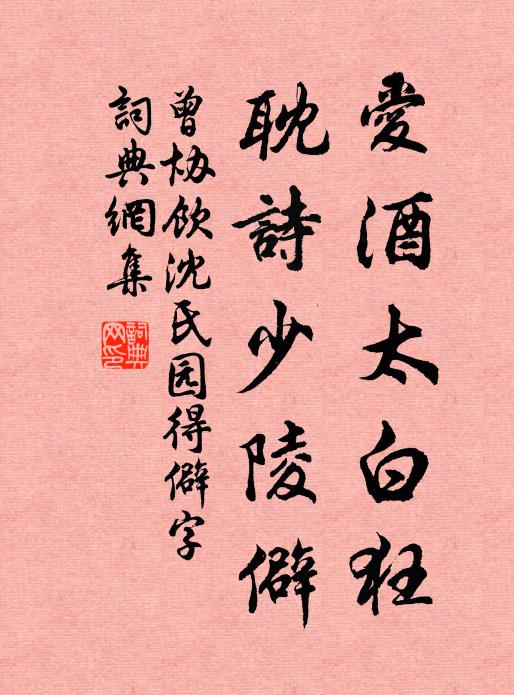 愛酒太白狂
耽詩少陵僻
曾协飲沈氏园得僻字
詞典網集
詞典網印